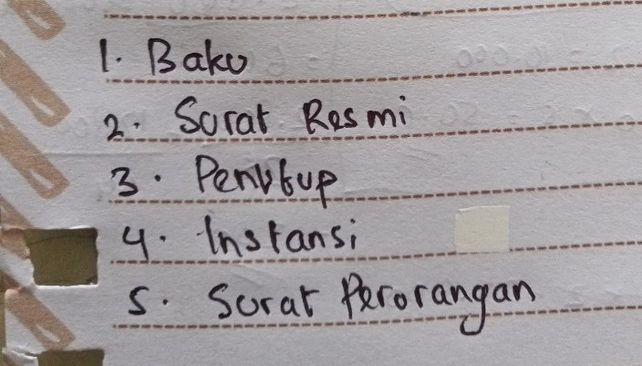 1. Baku
2. Surat Resmi
3. Penutup
4. Instansi
5. Surat Perorangan